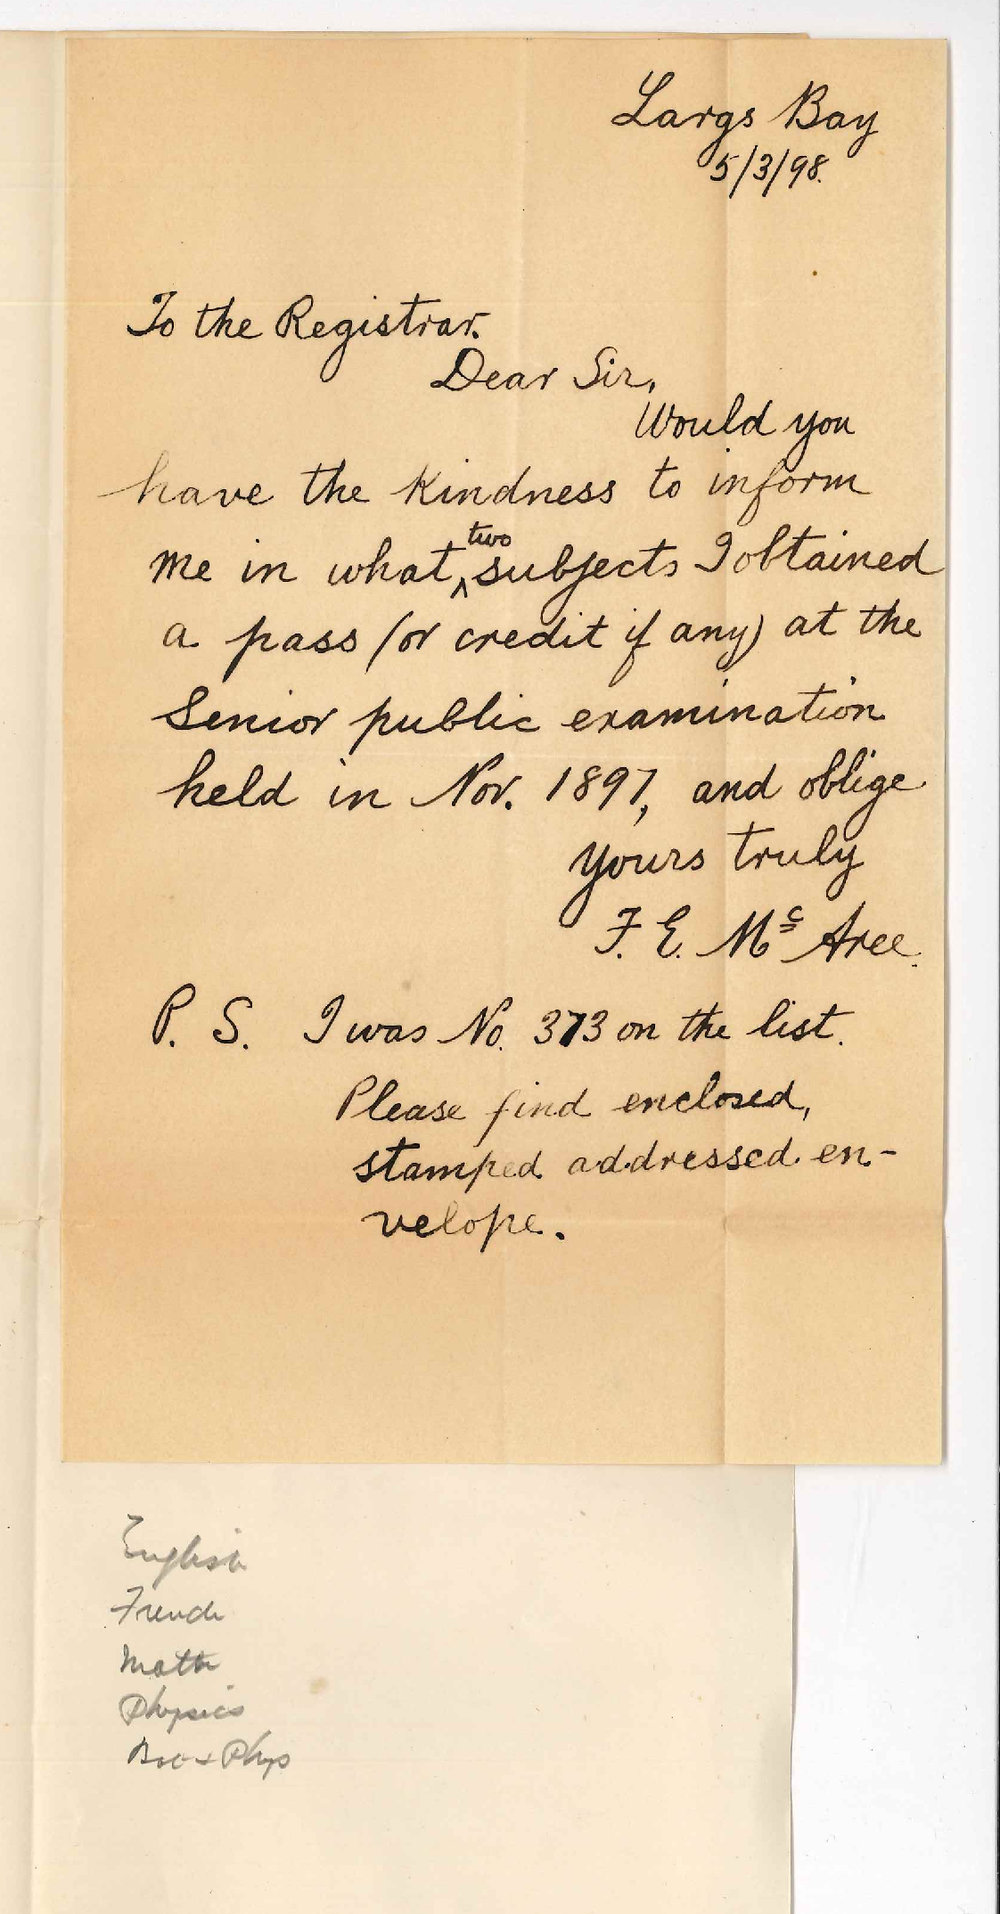 Largs Bay
5/3/98.
To the Registrar.
Dear Sir,
Would you
have the kindness to inform
me in what two subjects I obtained
a pass (or credit if any) at the
Senior public examination
held in Nov. 1897, and oblige
yours truly
F. E. Mc Aree.
P. S. I was No. 373 on the list.
Please find enclosed,
stamped addressed en-
velope.
English
French
Math
Physics
Bot & Phys